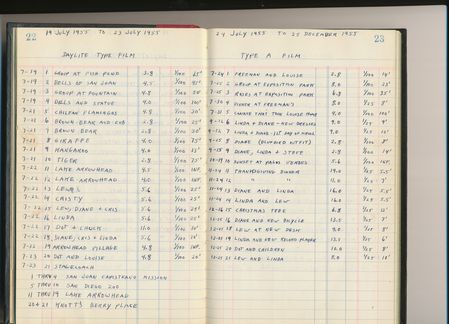 22
19 JULY 1955 TO 23 JULY 1955
DAYLITE TYPE FILM
7-19 1 GROUP AT FISH POND 2.8 1/100
7-19 2 BELLS OF SAN JUAN 4.5 1/100
7-19 3 GROUP AT FOUNTAIN 4.8 1/100
7-19 4 BELLS AND STATUE 4.0 1/100
7-21 5 CHILEAN FLAMINGOS 4.8 1/100 20'
7-21 6 BROWN BEAR AND CUB 2.8 1/100 25'
7-21 7 BROWN BEAR 2.8 1/100
7-21 8 GIRAFFE 4.0 1/100 75'
7-21 9 KANGAROO 4.0 1/100 15'
7-21 10 TIGER 2.8 1/100 75'
7-22 11 LAKE ARROWHEAD 4.5 1/100 INF.
7-22 12 LAKE ARROWHEAD 4.0 1/100 INF.
7-22 13 LEW 5.6 1/100 25'
7-22 14 CRISTY 5.6 1/100 25'
7-22 15 LEW, DIANE + CRIS 5.6 1/100
7-22 16 LINDA 5.6 1/100 25'
7-22 17 DOT + CHUCK 11.0 1/100
7-22 18 DIANE/CRIS + LINDA 5.6 1/100
7-22 19 ARROWHEAD VILLAGE 4.8 1/100 INF.
7-23 20 DOT AND LOUISE 4.8 1/100 20'
7-23 21 STAGECOACH
1 THRU 4 SAN JUAN CAPISTRANO MISSION
5 THRU 10 SAN DIEGO ZOO
11 THRU 19 LAKE ARROWHEAD
20 + 21 KNOTTS BERRY PLACE
23
24 JULY 1955 TO 25 DECEMBER 1955
TYPE A FILM
7-24 1 FREEMAN AND LOUISE 2.8 1/100 14'
7-25 2 GROUP AT EXPOSITION PARK 8.0 1/100 25'
7-25 3 ROSES AT EXPOSITION PARK 6.8 1/100 35'
7-30 4 DINNER AT FREEMAN'S 8.0 1/25 8'
7-31 5 CHUCK + DOT THOR HOUSE 4.0 1/100 100'
9-12 6 LINDA + DIANE - NEW DRESSES 9.0 1/25 9'
9-12 7 LINDA + DIANE - 1ST DAY OF SCHOOL 9.0 1/25
9-15 8 DIANE OUTFIT 2.8 1/100 8'
9-15 9 DIANE, LINDA + STEVE 2.8 1/100 14'
10-19 10 SUNSET AT PALOS VERDES 5.6 1/100 INF.
11-24 11 THANKSGIVING DINNER 19.0 1/25 5.5'
11-24 12 " " 11.0 1/25 7'
12-25 13 DIANE AND LINDA 16.0 1/25 5.5'
12-24 14 LINDA AND LEW 16.0 1/25 5.5'
12-16 15 CHRISTMAS TREE 6.8 1/25 12'
12-25 16 DIANE AND NEW BICYCLE 13.5 1/25 7'
12-25 18 LEW AT NEW DESK 9.0 1/25 8'
12-25 19 LINDA AND NEW RECORD PLAYER 13.1 1/25 6'
12-25 20 DOT AND CHILDREN 16.0 1/25 8'
12-25 21 LEW AND LINDA 8.0 1/25 10'